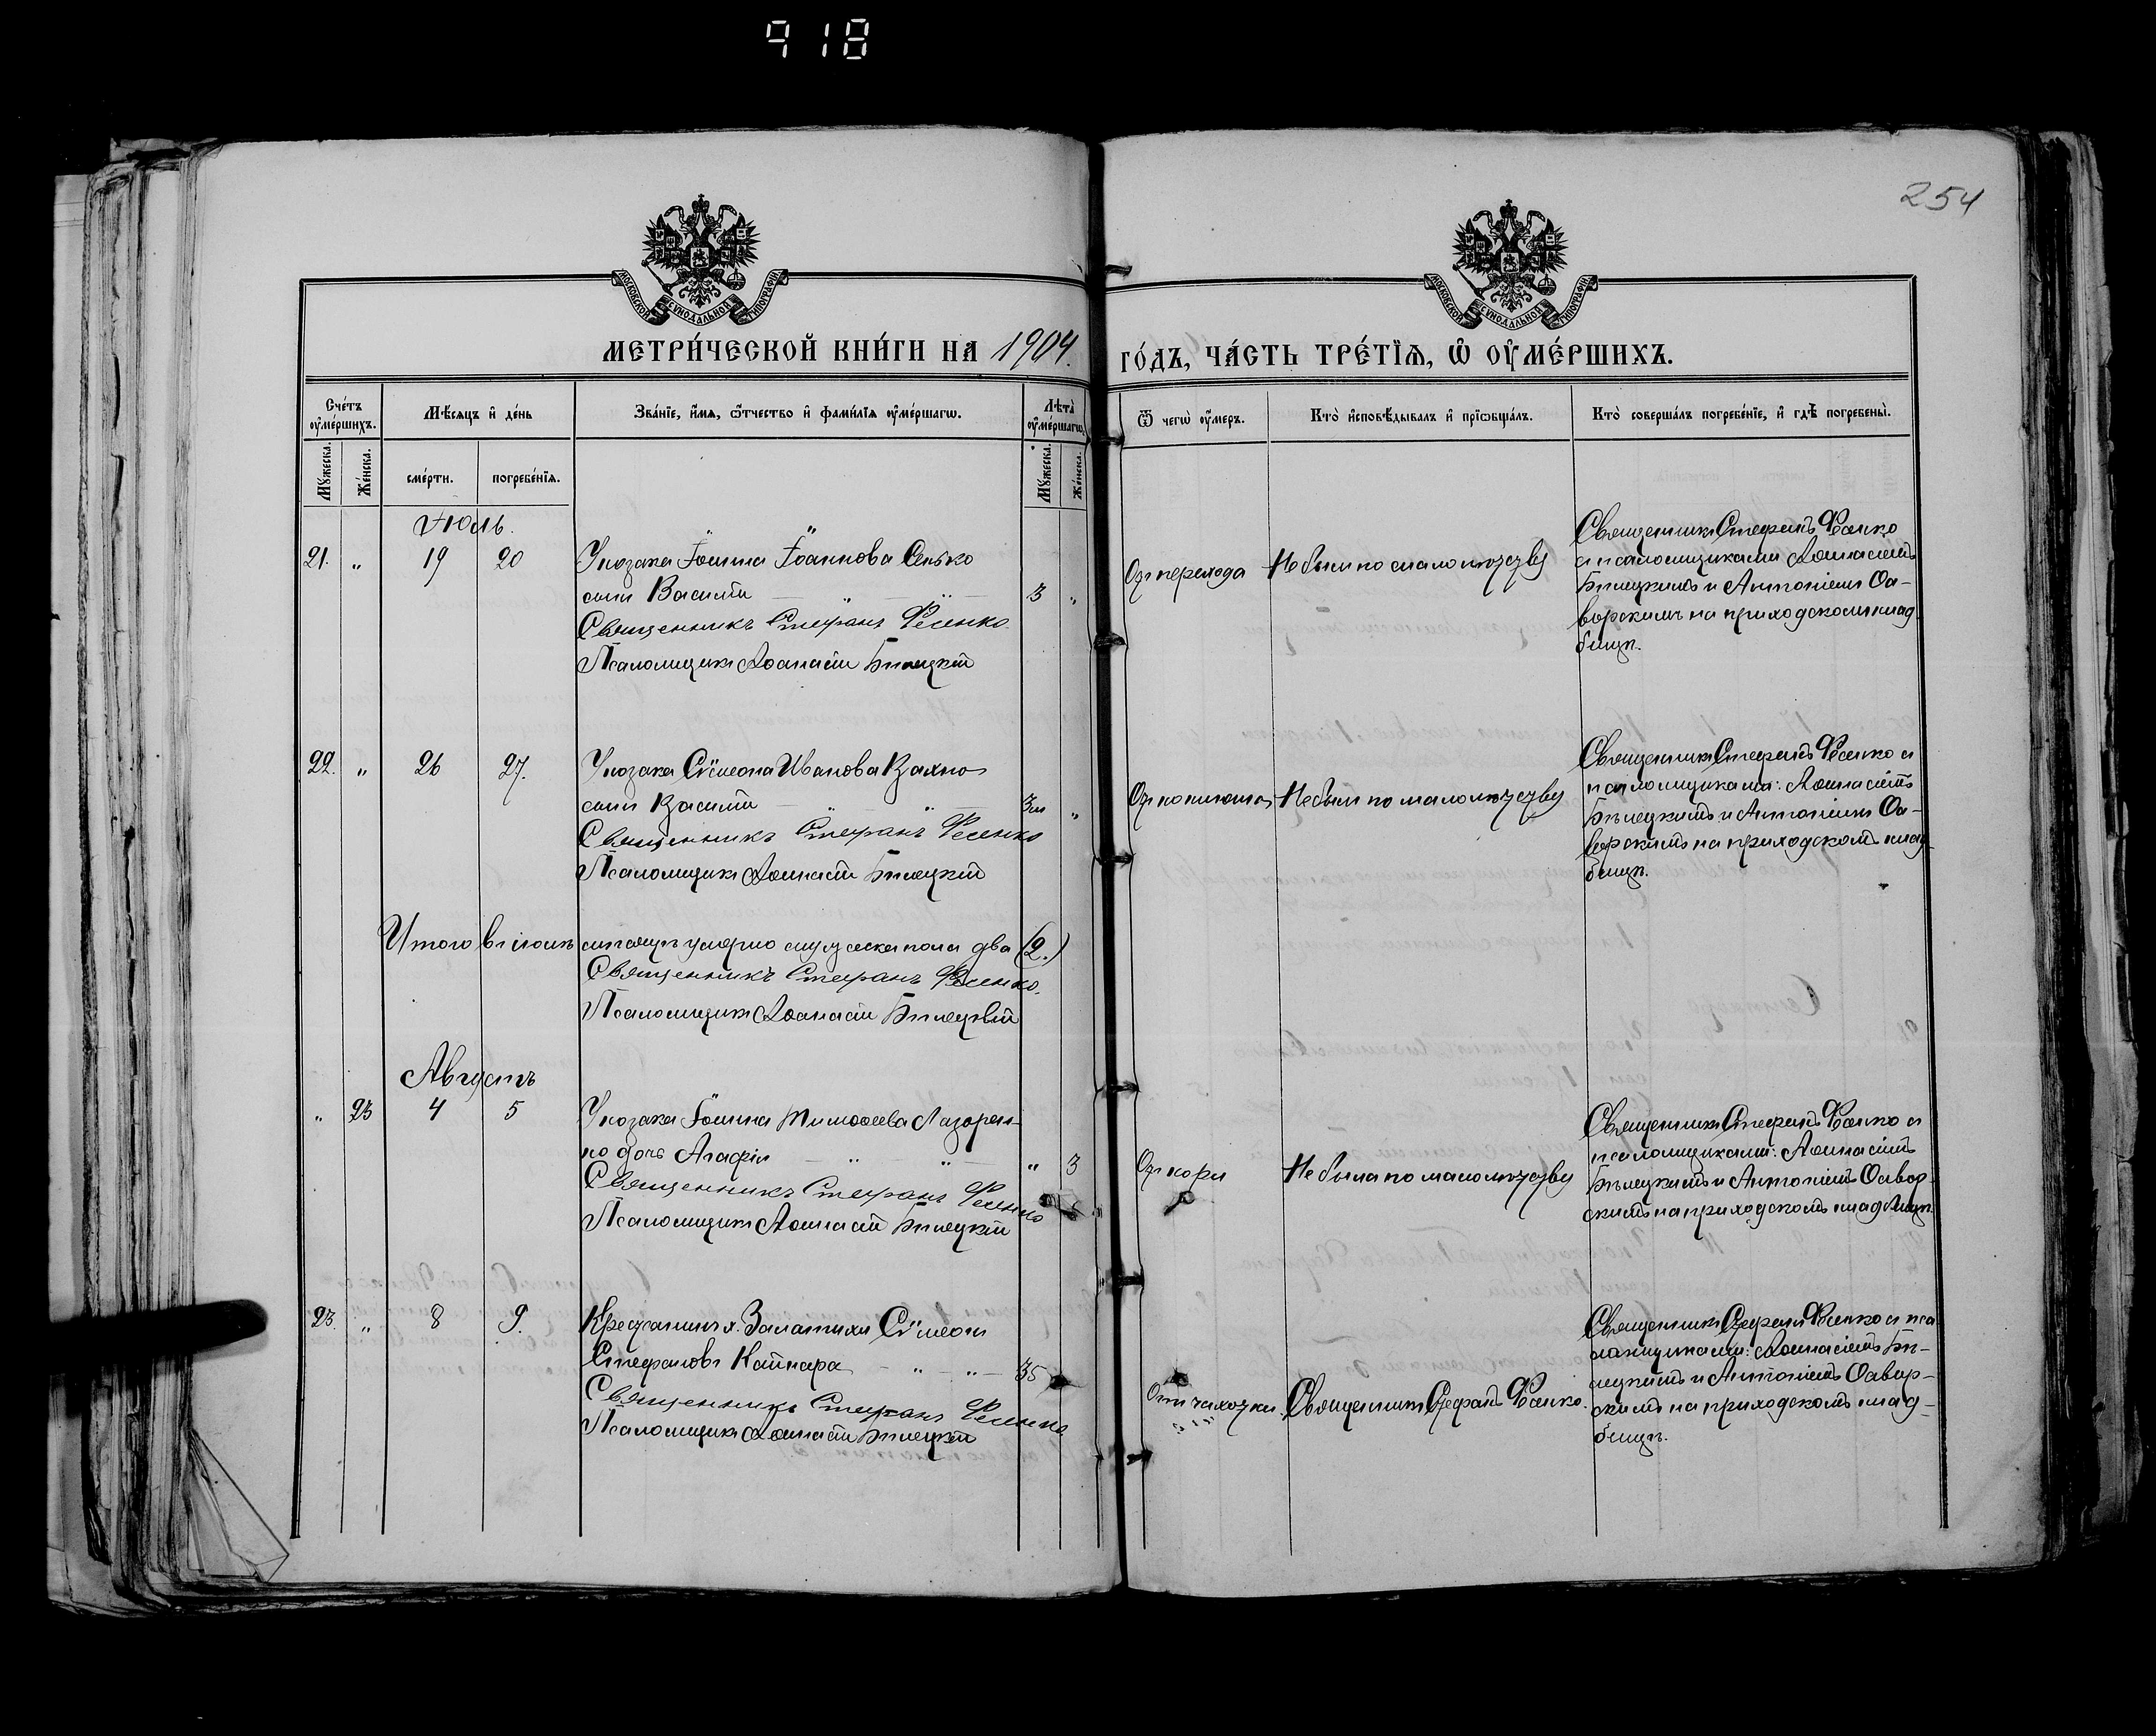 918
254
МОСКОВСКОЙ СѴНОДАЛЬНОЙ ТИПОГРАФІИ
МОСКОВСКОЙ СѴНОДАЛЬНОЙ ТИПОГРАФІИ
МЕТРИ́ЧЕСКОЙ КНИ́ГИ НА 1904.
ГО́ДЪ, ЧА́СТЬ ТРЕ́ТЇѦ, Ѡ҆ ОУ҆МЕ́РШИХЪ.
Сче́тъ оу҆ме́ршихъ.
Мѣ́сяцъ и҆ де́нь
Зва́нїе, и҆́мѧ, ѻ҆́тчество и҆ фами́лїѧ оу҆ме́ршагѡ.
Лѣ́та оу҆ме́ршагѡ.
Ѿ чегѡ̀ оу҆́мер.
Кто̀ и҆сповѣ́дывалъ и҆ прїѡбща́лъ.
Кто̀ соверша́лъ погребе́нїе, и҆ гдѣ̀ погребены̀.
Мꙋ́жеска.
Же́нска.
сме́рти.
погребе́нїѧ.
Мꙋ́жеска.
Же́нска.
Іюль.
21. " 19 20 У козака Іоанна Іоаннова Сенько
сынъ Василій 3 "
Священникъ Стефанъ Фесенко
Псаломщикъ Аѳанасій Бѣлецкій
От перехода
Не былъ по малолѣтству
Священникъ Стефанъ Фесенко
и псаломщиками Аѳанасіемъ
Бѣлецкимъ и Антоніемъ Са-
ворскимъ на приходскомъ клад
бищѣ.
22. " 26 27. У козака Сѵмеона Иванова Вахно
сынъ Василій 3м "
Священникъ Стефанъ Фесенко
Псаломщикъ Аѳанасій Бѣлецкій
От коклюша
Не былъ по малолѣтству
Священникъ Стефанъ Фесенко и
псаломщиками: Аѳанасіемъ
Бѣлецкимъ и Антоніемъ Са-
ворскимъ на приходскомъ клад
бищѣ.
Итого въ іюлѣ мѣсяцѣ умерло мужеска пола два (2.)
Священникъ Стефанъ Фесенко.
Псаломщикъ Аѳанасій Бѣлецкій
Августъ
" 23 4 5 У козака Іоанна Тимоѳеева Лазорен-
ко дочь Агафія " 3
Священникъ Стефанъ Фесенко
Псаломщикъ Аѳанасій Бѣлецкій
От кори
Не была по малолѣтству
Священникъ Стефанъ Фесенко и
псаломщиками: Аѳанасіемъ
Бѣлецкимъ и Антоніемъ Савор-
скимъ на приходскомъ кладбищѣ
23. " 8 9. Крестьянинъ х. Сѵмеонъ
Стефановъ 35
Священникъ Стефанъ Фесенко
Псаломщикъ Аѳанасій Бѣлецкій
Отъ чахотки.
Священникъ Стефанъ Фесенко.
Священникъ Стефанъ Фесенко и пса
ломщиками: Аѳанасіемъ Бѣ-
лецкимъ и Антоніемъ Савор-
скимъ на приходскомъ клад-
бищѣ.